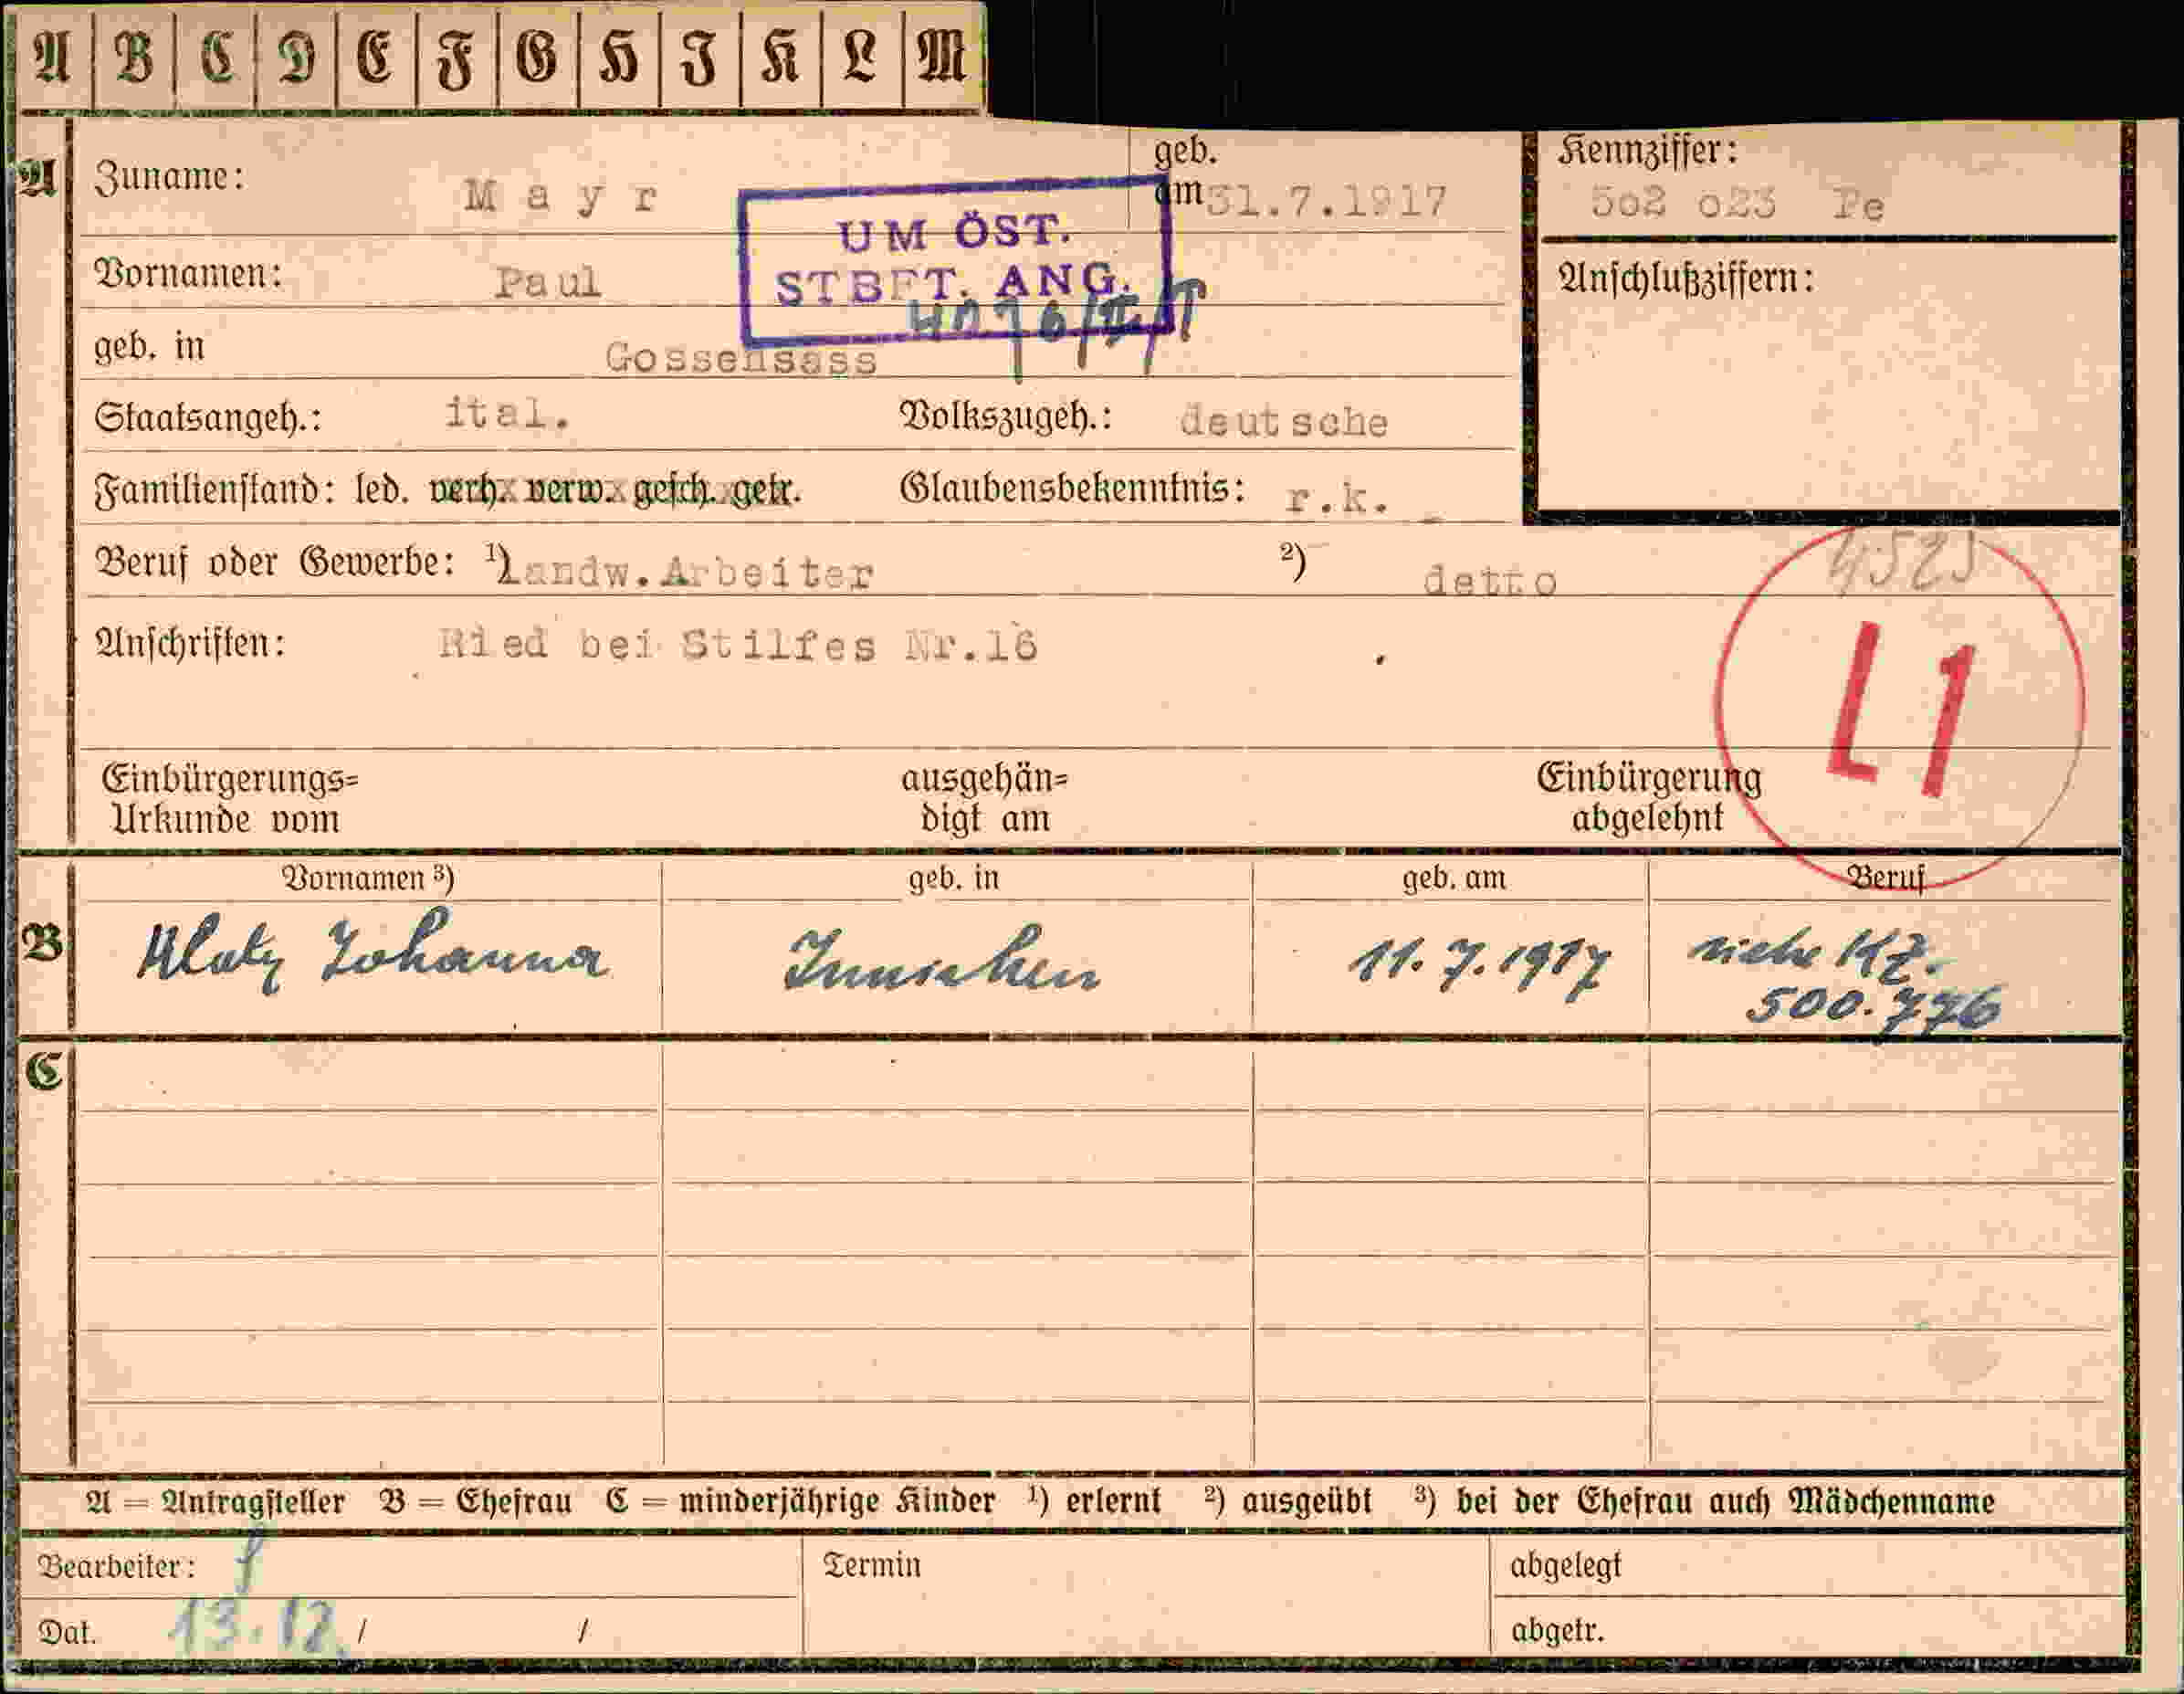 A B C D E F G H I K L M
A
Zuname: Mayr
geb. am 31.7.1917
Kennziffer:
502 023 Pe
UM ÖST.
STBFT. ANG.
Vornamen: Paul
Anschlußziffern:
geb. in Gossensass
Staatsangeh.: ital. Volkszugeh.: deutsche
Familienstand: led. verh. verw. gesch. getr. Glaubensbekenntnis: r.k.
Beruf oder Gewerbe: 1) Landw.Arbeiter 2) detto
Anschriften: Ried bei Stilfes Nr.16
L1
Einbürgerungs= ausgehän= Einbürgerung
Urkunde vom digt am abgelehnt
Vornamen 3) geb. in geb. am Beruf
B
Johanna Innichen 11.7.1917 siehe KZ.
500.776
C
A = Antragsteller B = Ehefrau C = minderjährige Kinder 1) erlernt 2) ausgeübt 3) bei der Ehefrau auch Mädchenname
Bearbeiter: Termin abgelegt
Dat. 13.12. / / abgetr.